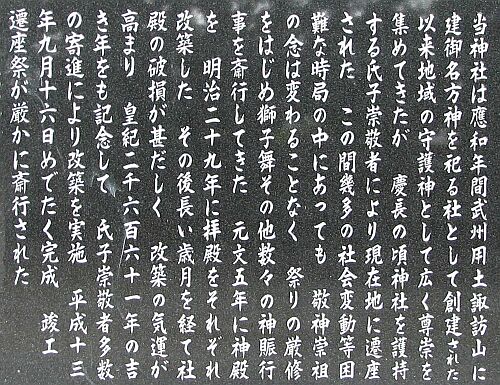 当神社は應和年間武州用土諏訪山に
建御名方神を祀る社として創建された
以来地域の守護神として広く尊崇を
集めてきたが　慶長の頃神社を護持
する氏子崇敬者により現在地に遷座
された　この間幾多の社会変動等困
難な時局の中にあっても　敬神崇祖
の念は変わることなく　祭りの厳修
をはじめ獅子舞その他数々の神賑行
事を斎行してきた　元文五年に神殿
を　明治二十九年に拝殿をそれぞれ
改築した　その後長い歳月を経て社
殿の破損が甚だしく　改築の気運が
高まり　皇紀二千六百六十一年の吉
き年をも記念して　氏子崇敬者多数
の寄進により改築を実施　平成十三
年九月十六日めでたく完成　竣工
遷座祭が厳かに斎行された